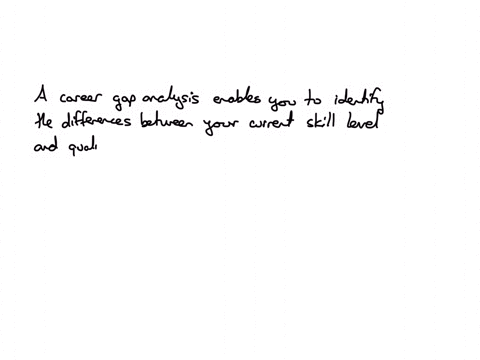 A career gap analysis enables you to identify
the differences between your current skill level
and quali